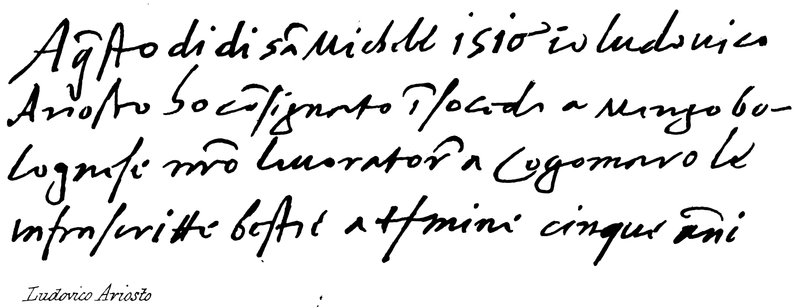 Aq̃sto di di sã Michele 1510 io ludovico
Ariosto ho cõsignato ĩ soceda a Mengo bo-
lognese nr̃o lavorator̃ a Cogomaro le
infrascritte bestie a tr̃mine cinque ãni
Ludovico Ariosto